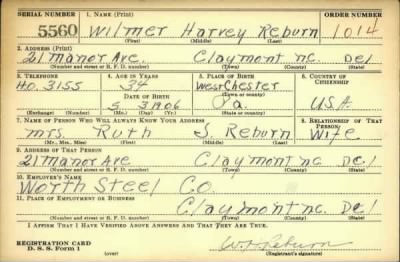 SERIAL NUMBER 1. NAME (Print) ORDER NUMBER
5560 Wilmer Harvey Reburn 1014
(First) (Middle) (Last)
2. ADDRESS (Print)
21 Manor Ave. Claymont N.C. Del
(Number and street or R. F. D. number) (Town) (County) (State)
3. TELEPHONE 4. AGE IN YEARS 5. PLACE OF BIRTH 6. COUNTRY OF CITIZENSHIP
HO. 3155 34 West Chester
DATE OF BIRTH (Town or county)
5 31906 Pa. U.S.A.
(Exchange) (Number) (Mo.) (Day) (Yr.) (State or country)
7. NAME OF PERSON WHO WILL ALWAYS KNOW YOUR ADDRESS 8. RELATIONSHIP OF THAT PERSON
Mrs. Ruth S. Reburn Wife
(Mr., Mrs., Miss) (First) (Middle) (Last)
9. ADDRESS OF THAT PERSON
21 Manor Ave Claymont N.C. Del
(Number and street or R. F. D. number) (Town) (County) (State)
10. EMPLOYER'S NAME
Worth Steel Co.
11. PLACE OF EMPLOYMENT OR BUSINESS
Claymont N.C. Del
(Number and street or R. F. D. number) (Town) (County) (State)
I AFFIRM THAT I HAVE VERIFIED ABOVE ANSWERS AND THAT THEY ARE TRUE.
REGISTRATION CARD
D. S. S. Form 1 (over) (Registrant's signature)
W. H. Reburn